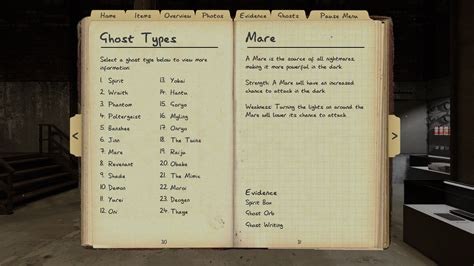 Home Items Overview Photos Evidence Ghosts Pause Menu
Ghost Types
Select a ghost type below to view more
information
1. Spirit 13. Yokai
2. Wraith 14. Hantu
3. Phantom 15. Goryo
4. Poltergeist 16. Myling
5. Banshee 17. Onryo
6. Jinn 18. The Twins
7. Mare 19. Raiju
8. Revenant 20. Obake
9. Shade 21. The Mimic
10. Demon 22. Moroi
11. Yurei 23. Deogen
12. Oni 24. Thaye
30
Mare
A Mare is the source of all nightmares,
making it more powerful in the dark.
Strength: A Mare will have an increased
chance to attack in the dark.
Weakness: Turning the lights on around the
Mare will lower its chance to attack.
Evidence
Spirit Box
Ghost Orb
Ghost Writing
31